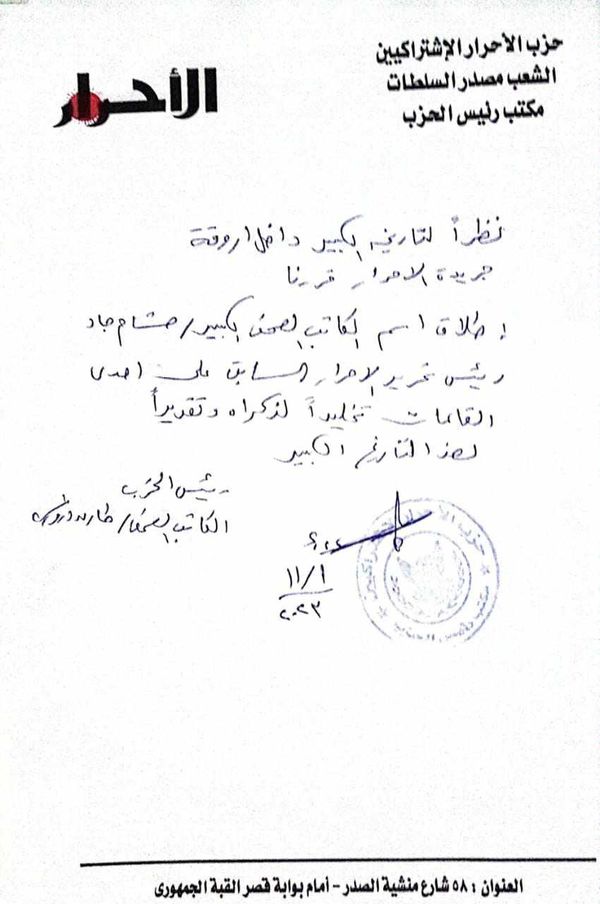 حزب الأحرار الإشتراكيين
الشعب مصدر السلطات
مكتب رئيس الحزب
الأحرار
نظراً لتاريخه الكبير داخل اروقة
جريدة الاحرار قررنا
إطلاق اسم الكاتب الصحفى الكبير/ هشام جاد
رئيس تحرير الاحرار السابق على احدى
القاعات تخليداً لذكراه وتقديراً
لهذا التاريخ الكبير
رئيس الحزب
الكاتب الصحفى/ طارق درويش
١١/١
٢٠٢٣
حزب الأحرار الاشتراكيين
مكتب رئيس الحزب
العنوان : ٥٨ شارع منشية الصدر - أمام بوابة قصر القبة الجمهورى